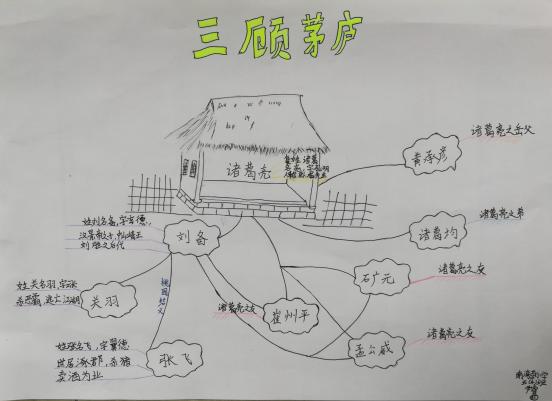 三顾茅庐
诸葛亮
诸葛亮之岳父
黄承彦
诸葛亮之弟
诸葛均
刘备
姓刘名备，字玄德，
刘胜之后代
姓关名羽，字云长
关羽
桃园结义
诸葛亮之友
崔州平
石广元
诸葛亮之友
孟公威
诸葛亮之友
姓张名飞，字翼德
世居涿郡，杀猪
卖酒为业
张飞